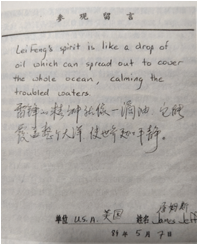 参观留言
Lei Feng's spirit is like a drop of
oil which can spread out to cover
the whole ocean, calming the
troubled waters.
雷锋的精神就像一滴油,它能
覆盖整个大洋,使
平静。
单位 U.S.A. 美国 姓名 James
8 年 5 月 7 日